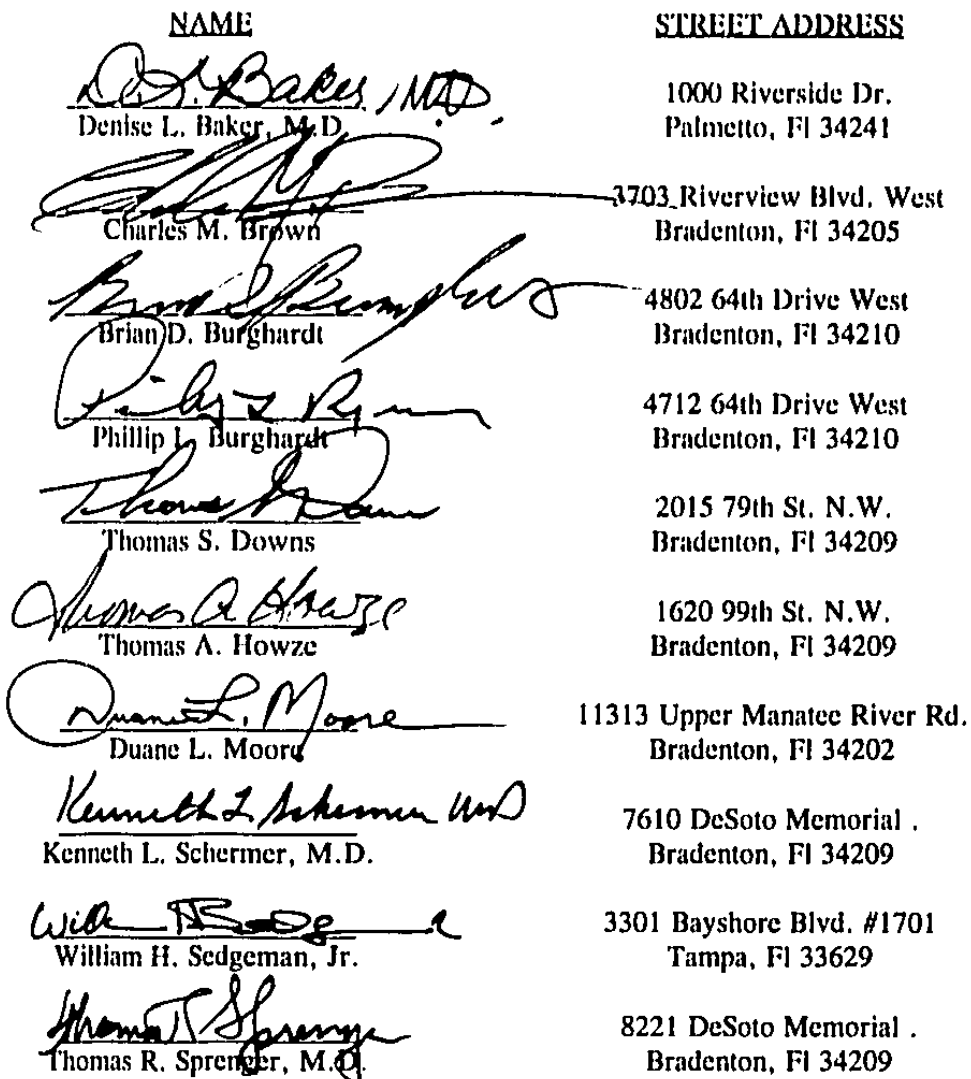 NAME STREET ADDRESS
D. L. Baker, M.D.
Denise L. Baker, M.D. 1000 Riverside Dr.
Palmetto, Fl 34241
Charles M. Brown 3703 Riverview Blvd. West
Bradenton, Fl 34205
Brian D. Burghardt 4802 64th Drive West
Bradenton, Fl 34210
Phillip L. Burghardt 4712 64th Drive West
Bradenton, Fl 34210
Thomas S. Downs 2015 79th St. N.W.
Bradenton, Fl 34209
Thomas A Howze
Thomas A. Howze 1620 99th St. N.W.
Bradenton, Fl 34209
Duane L. Moore
Duane L. Moore 11313 Upper Manatee River Rd.
Bradenton, Fl 34202
Kenneth L Schermer MD
Kenneth L. Schermer, M.D. 7610 DeSoto Memorial .
Bradenton, Fl 34209
William H. Sedgeman, Jr. 3301 Bayshore Blvd. #1701
Tampa, Fl 33629
Thomas R. Sprenger, M.D. 8221 DeSoto Memorial .
Bradenton, Fl 34209